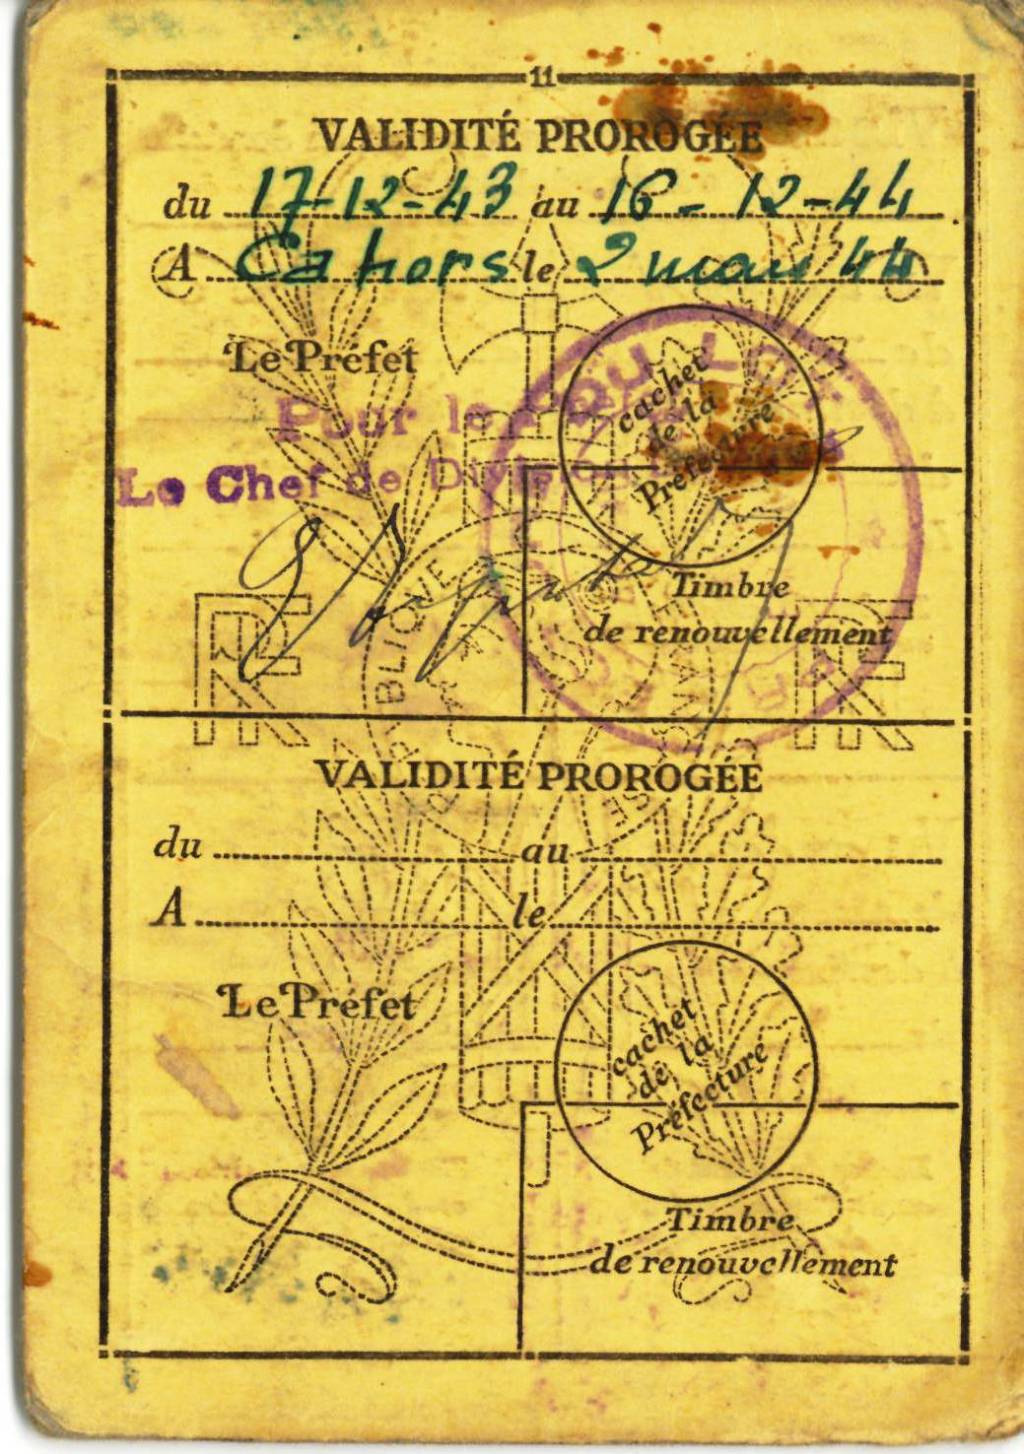 11
VALIDITÉ PROROGÉE
du 17-12-43 au 16-12-44
A Cahors le 2 mai 44
Le Préfet
cachet
de la
Préfecture
Pour le Préfet
Le Chef de Division
DU LOT
Timbre
de renouvellement
RF
RF
VALIDITÉ PROROGÉE
du au
A le
Le Préfet
cachet
de la
Préfecture
Timbre
de renouvellement